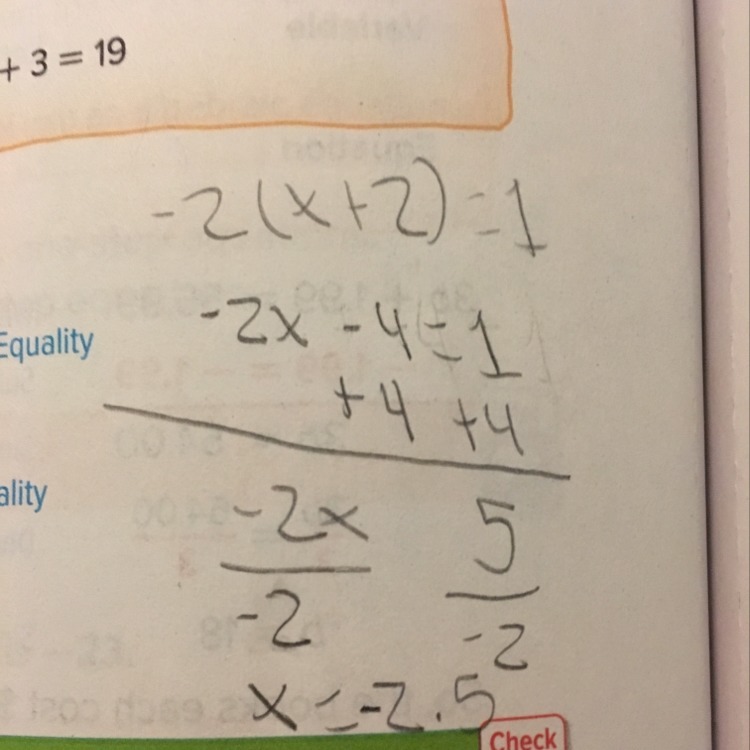 + 3 = 19
-2(x+2)=1
-2x -4=1
Equality
+4 +4
ality
-2x 5
-2 -2
x=-2.5
Check